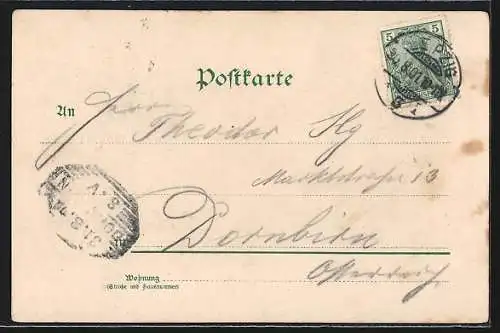 5 5
LEIPZIG
Postkarte
An
Herrn
Theodor Hg
Marktstraße 13
Dornbirn
Österreich
31.8.01
8-V
Wohnung
(Straße und Hausnummer)